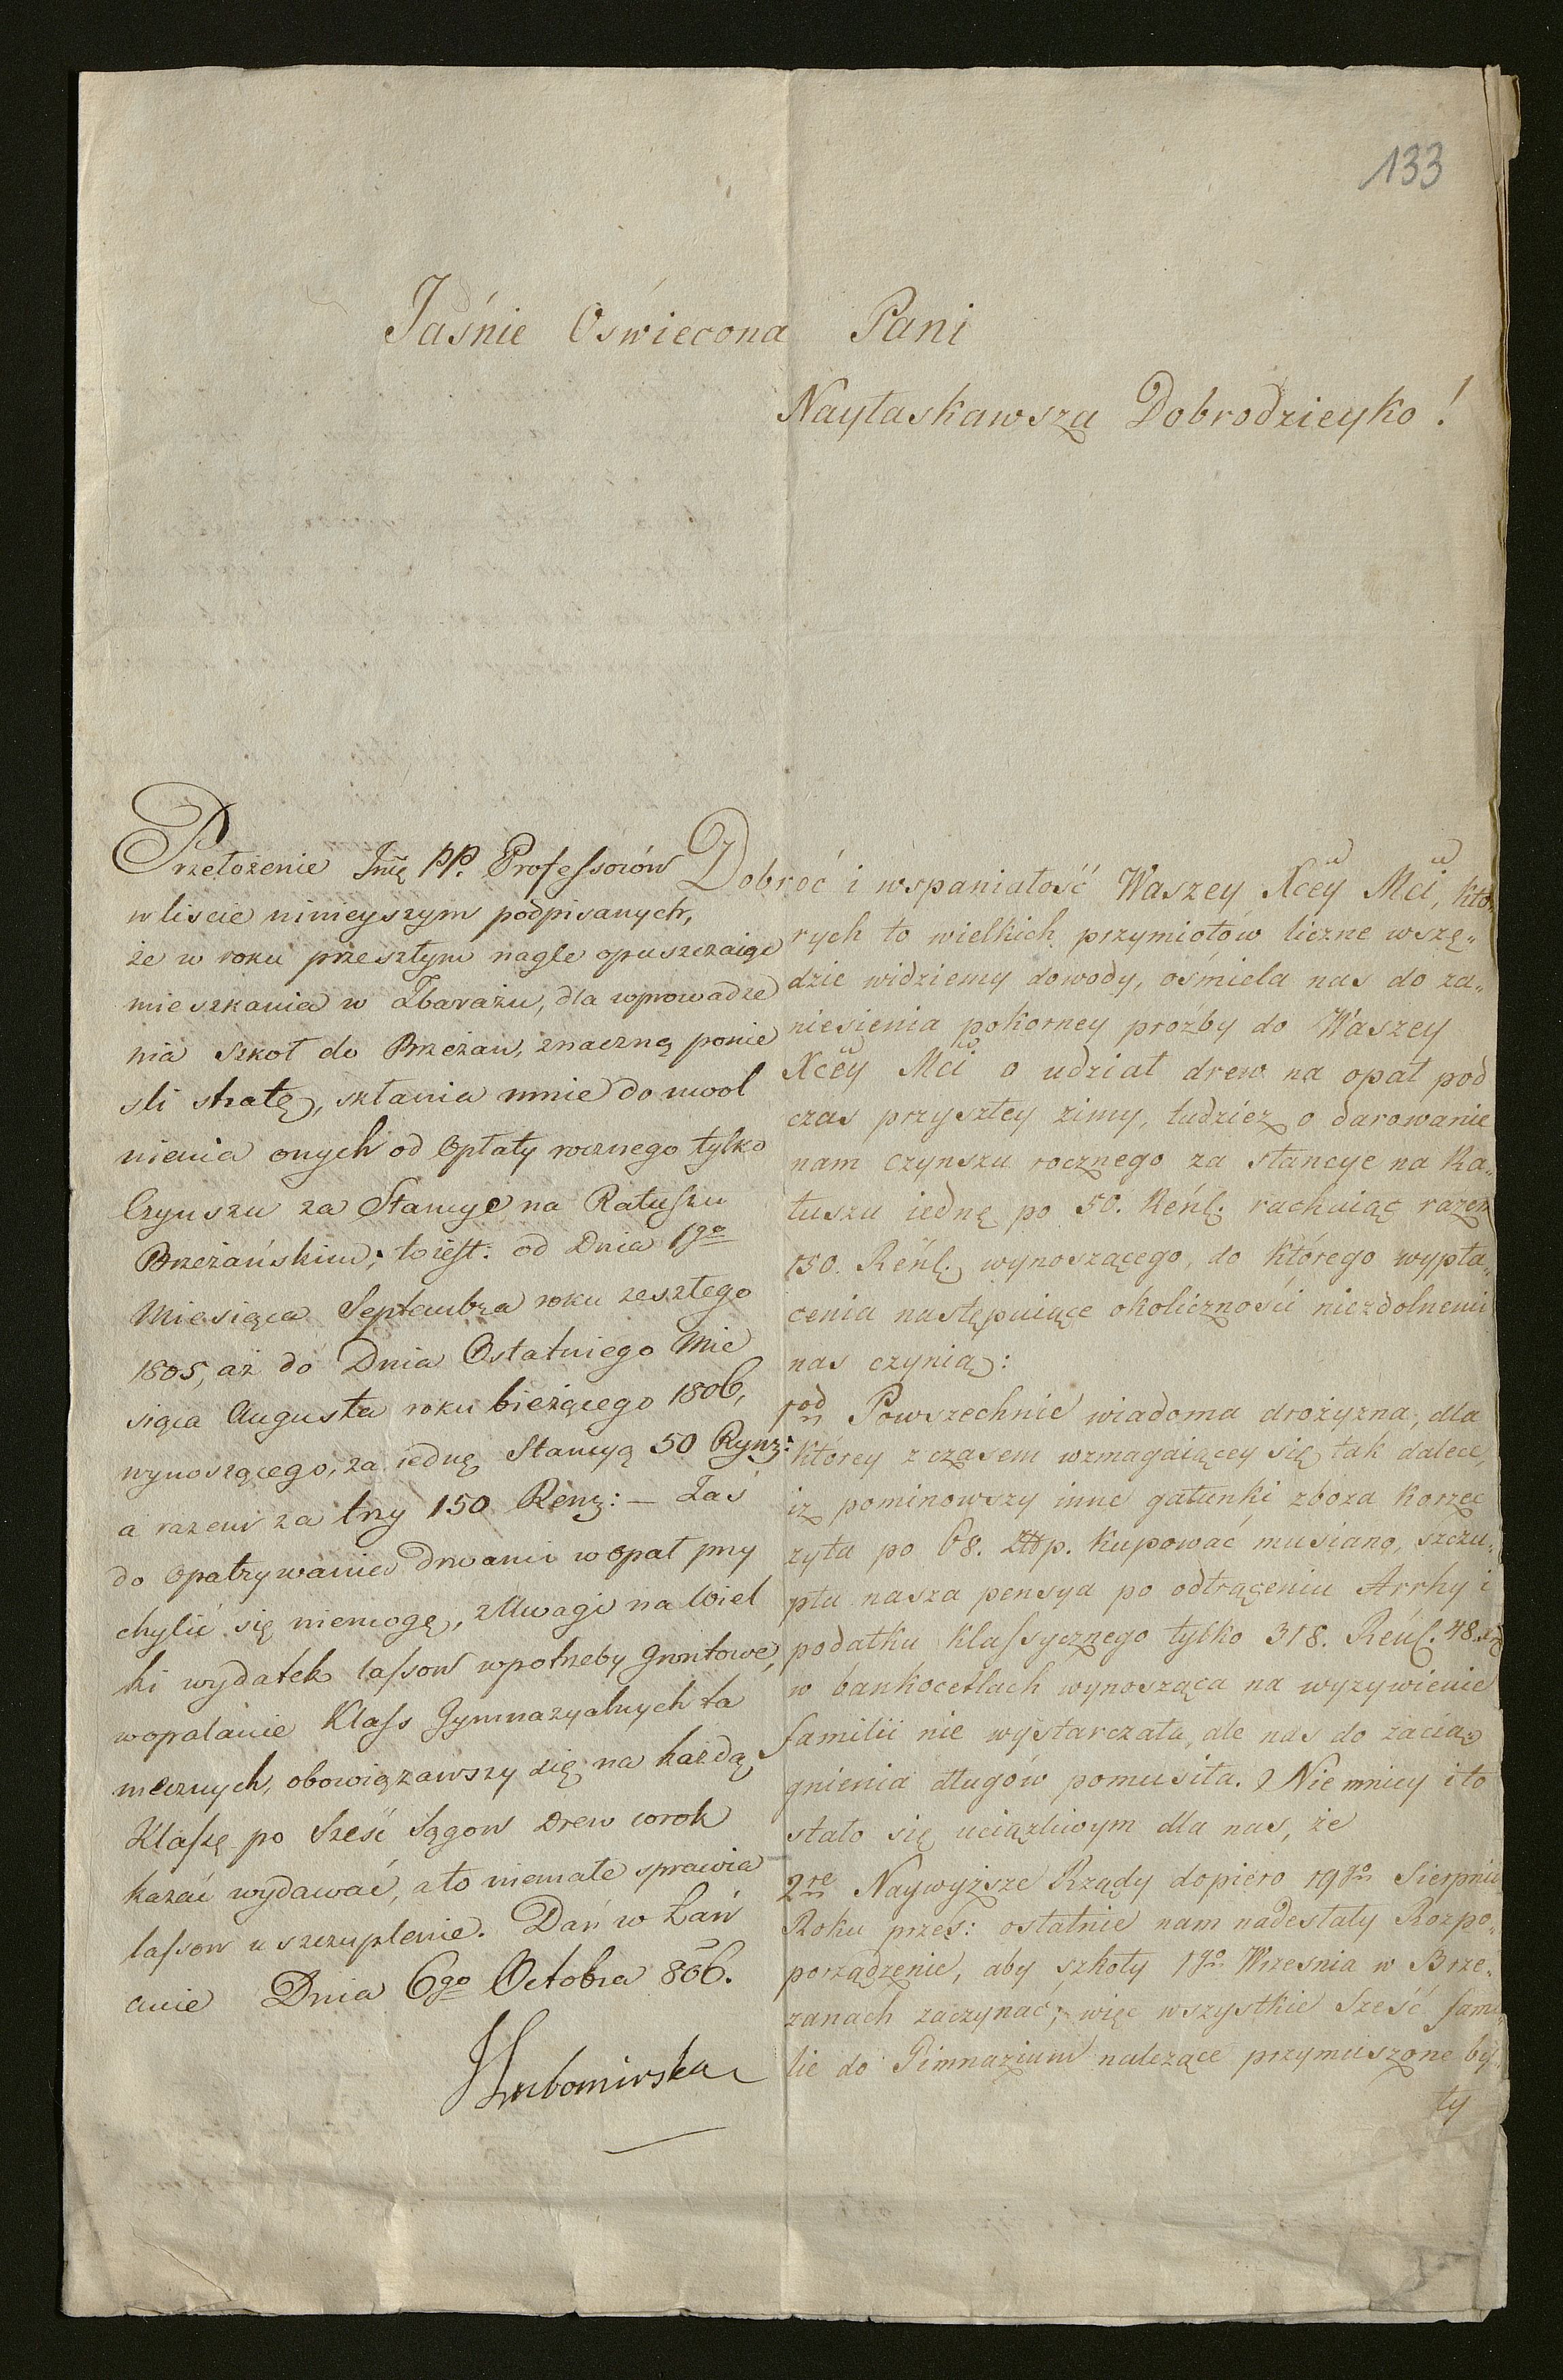 133
Jaśnie Oświecona Pani
Nayłaskawsza Dobrodzieyko!
Przełożenie Jmę PP. Professorów
w liście ninieyszym podpisanych,
że w roku przeszłym nagle opuszczaiąc
mieszkania w Zbarażu, dla wprowadze
nia szkoł do Brzeżan, znaczną ponie
śli stratę, skłania mnie do uwol
nienia onych od Opłaty rocznego tylko
Czynszu za Stancye na Ratuszu
Brzeżańskim; to iest: od Dnia 1go
Miesiąca Septembra roku zeszłego
1805, aż do Dnia Ostatniego Mie
siąca Augusta roku bieżącego 1806,
wynoszącego, za iednę Stancyą 50 Rynz:
a razem za trzy 150 Renz: – Zaś
do opatrywania drwami w opał przy
chylić się niemogę, z Uwagi na Wiel
ki wydatek lassow w potrzeby Gruntowe,
w opalanie Klass Gymnazyalnych ta
mecznych, obowiązawszy się na każdą
Klassę po sześć Sągow Drew corok
kazać wydawać, a to niemałe sprawia
lassow uszczuplenie. Dań w Łań
cucie Dnia 6go Octobra 806.
Lubomirska
Dobroć i wspaniałość Waszey Xcey Mci, któ„
rych to wielkich przymiotów liczne wszę„
dzie widziemy dowody, ośmiela nas do za„
niesienia pokorney proźby do Waszey
Xcey Mci o udział drew na opał pod
czas przyszłey zimy, tudzież o darowanie
nam czynszu rocznego za stancye na Ra„
tuszu iednę po 50. Reńl. rachuiąc razem
150. Reńl. wynoszącego, do którego wypła„
cenia następuiące okoliczności niezdolnemi
nas czynią:
1od Powszechnie wiadoma drożyzna, dla
którey z czasem wzmagaiącey się tak dalece,
iż pominowszy inne gatunki zboża korzec
żyta po 68. Złłp. kupować musiano, szczu„
pła nasza pensya po odtrąceniu Arrhy i
podatku klassycznego tylko 318. Reńl. 48
w bankocetlach wynosząca na wyżywienie
familii nie wystarczała, ale nas do zacią„
gnienia długów pomusiła. Niemniey i to
stało się uciążliwym dla nas, że
2re Naywyższe Rządy dopiero 19go Sierpnia
Roku prześ: ostatnie nam nadesłały Rozpo„
porządzenie, aby szkoły 1go Września w Brze„
zanach zaczynać; więc wszystkie sześć fami„
lie do Gimnazium należące przymuszone by„
ły